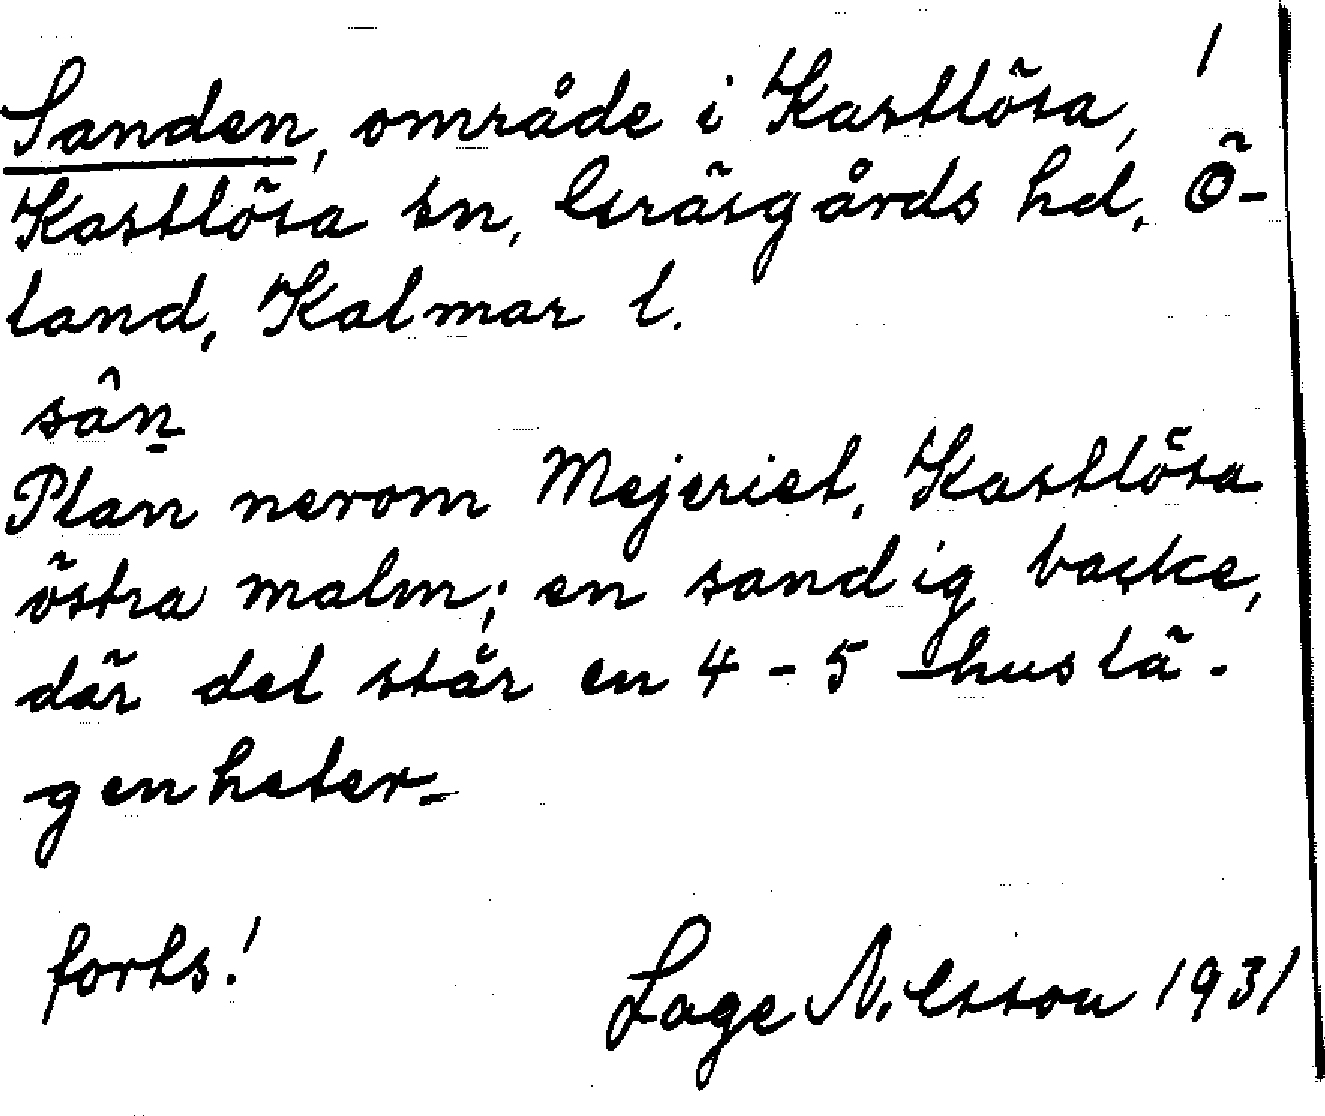 1
Sanden, område i Kastlösa,
Kastlösa sn, Gräsgårds hd, Ö-
land, Kalmar l.
sân̲
Plan nerom Mejeriet, Kastlösa
östra malm; en sandig backe,
där det står en 4-5 huslä-
genheter.
forts!
Lage Nilsson 1931